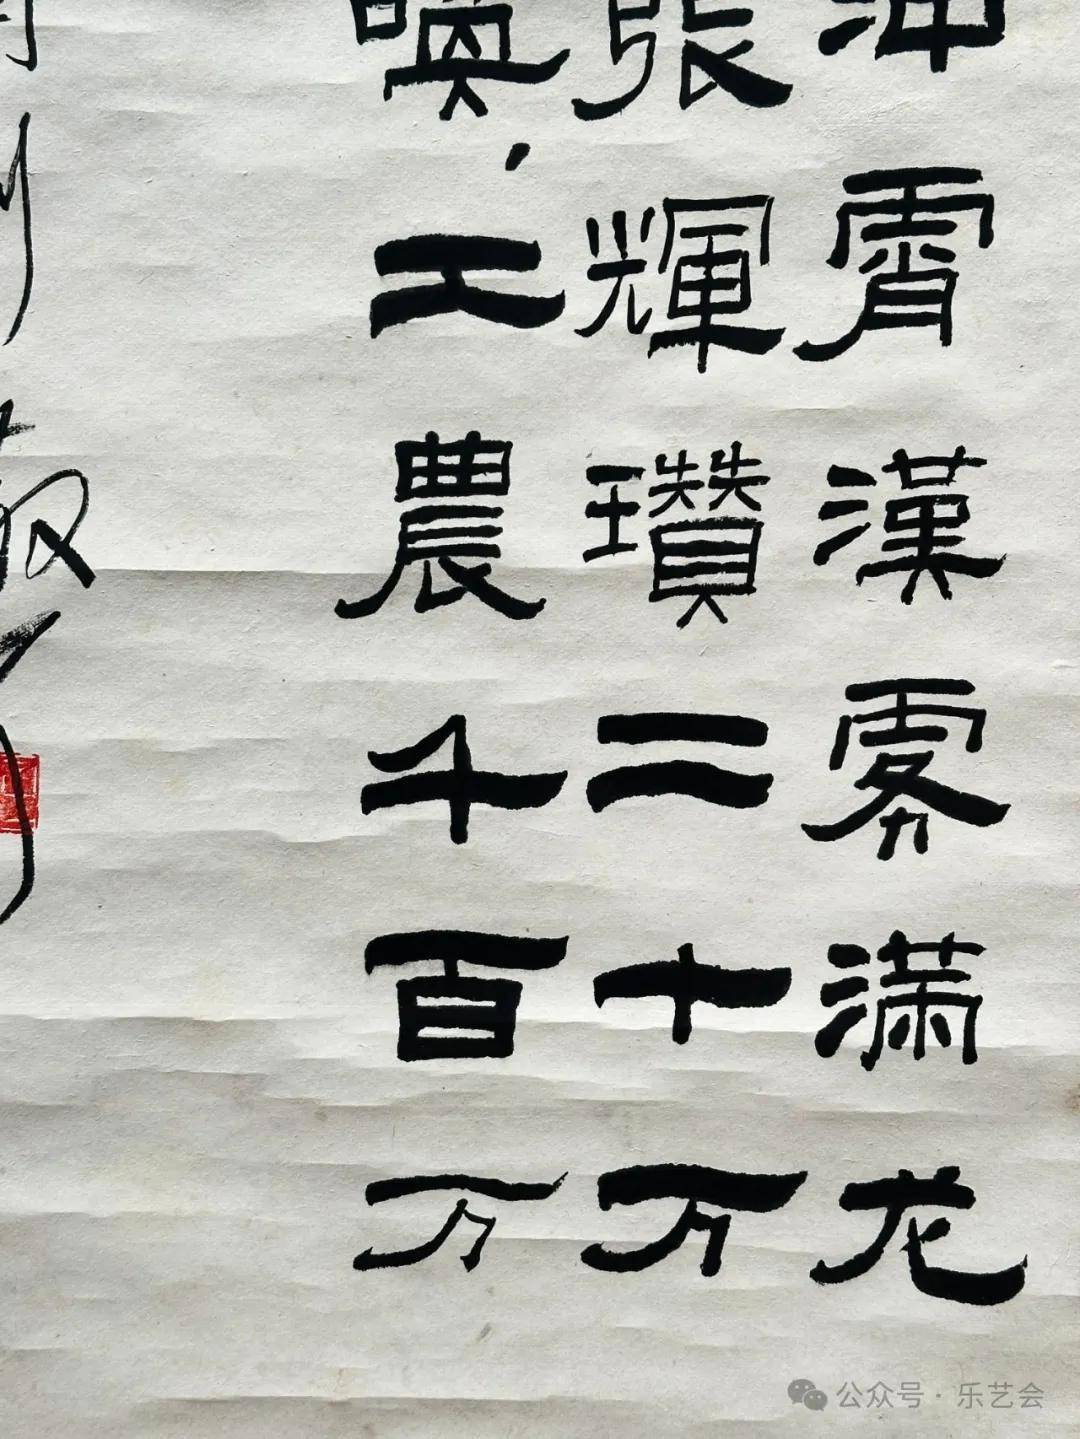 霄漢雾满龙
張輝瓚二十万
唤工農千百万
敬
公众号·乐艺会